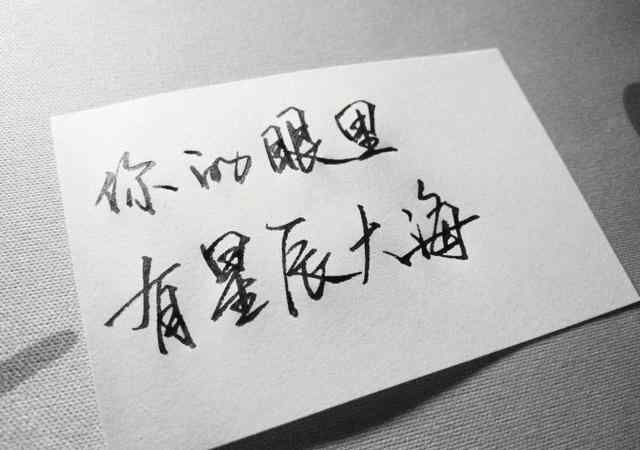 你的眼里
有星辰大海